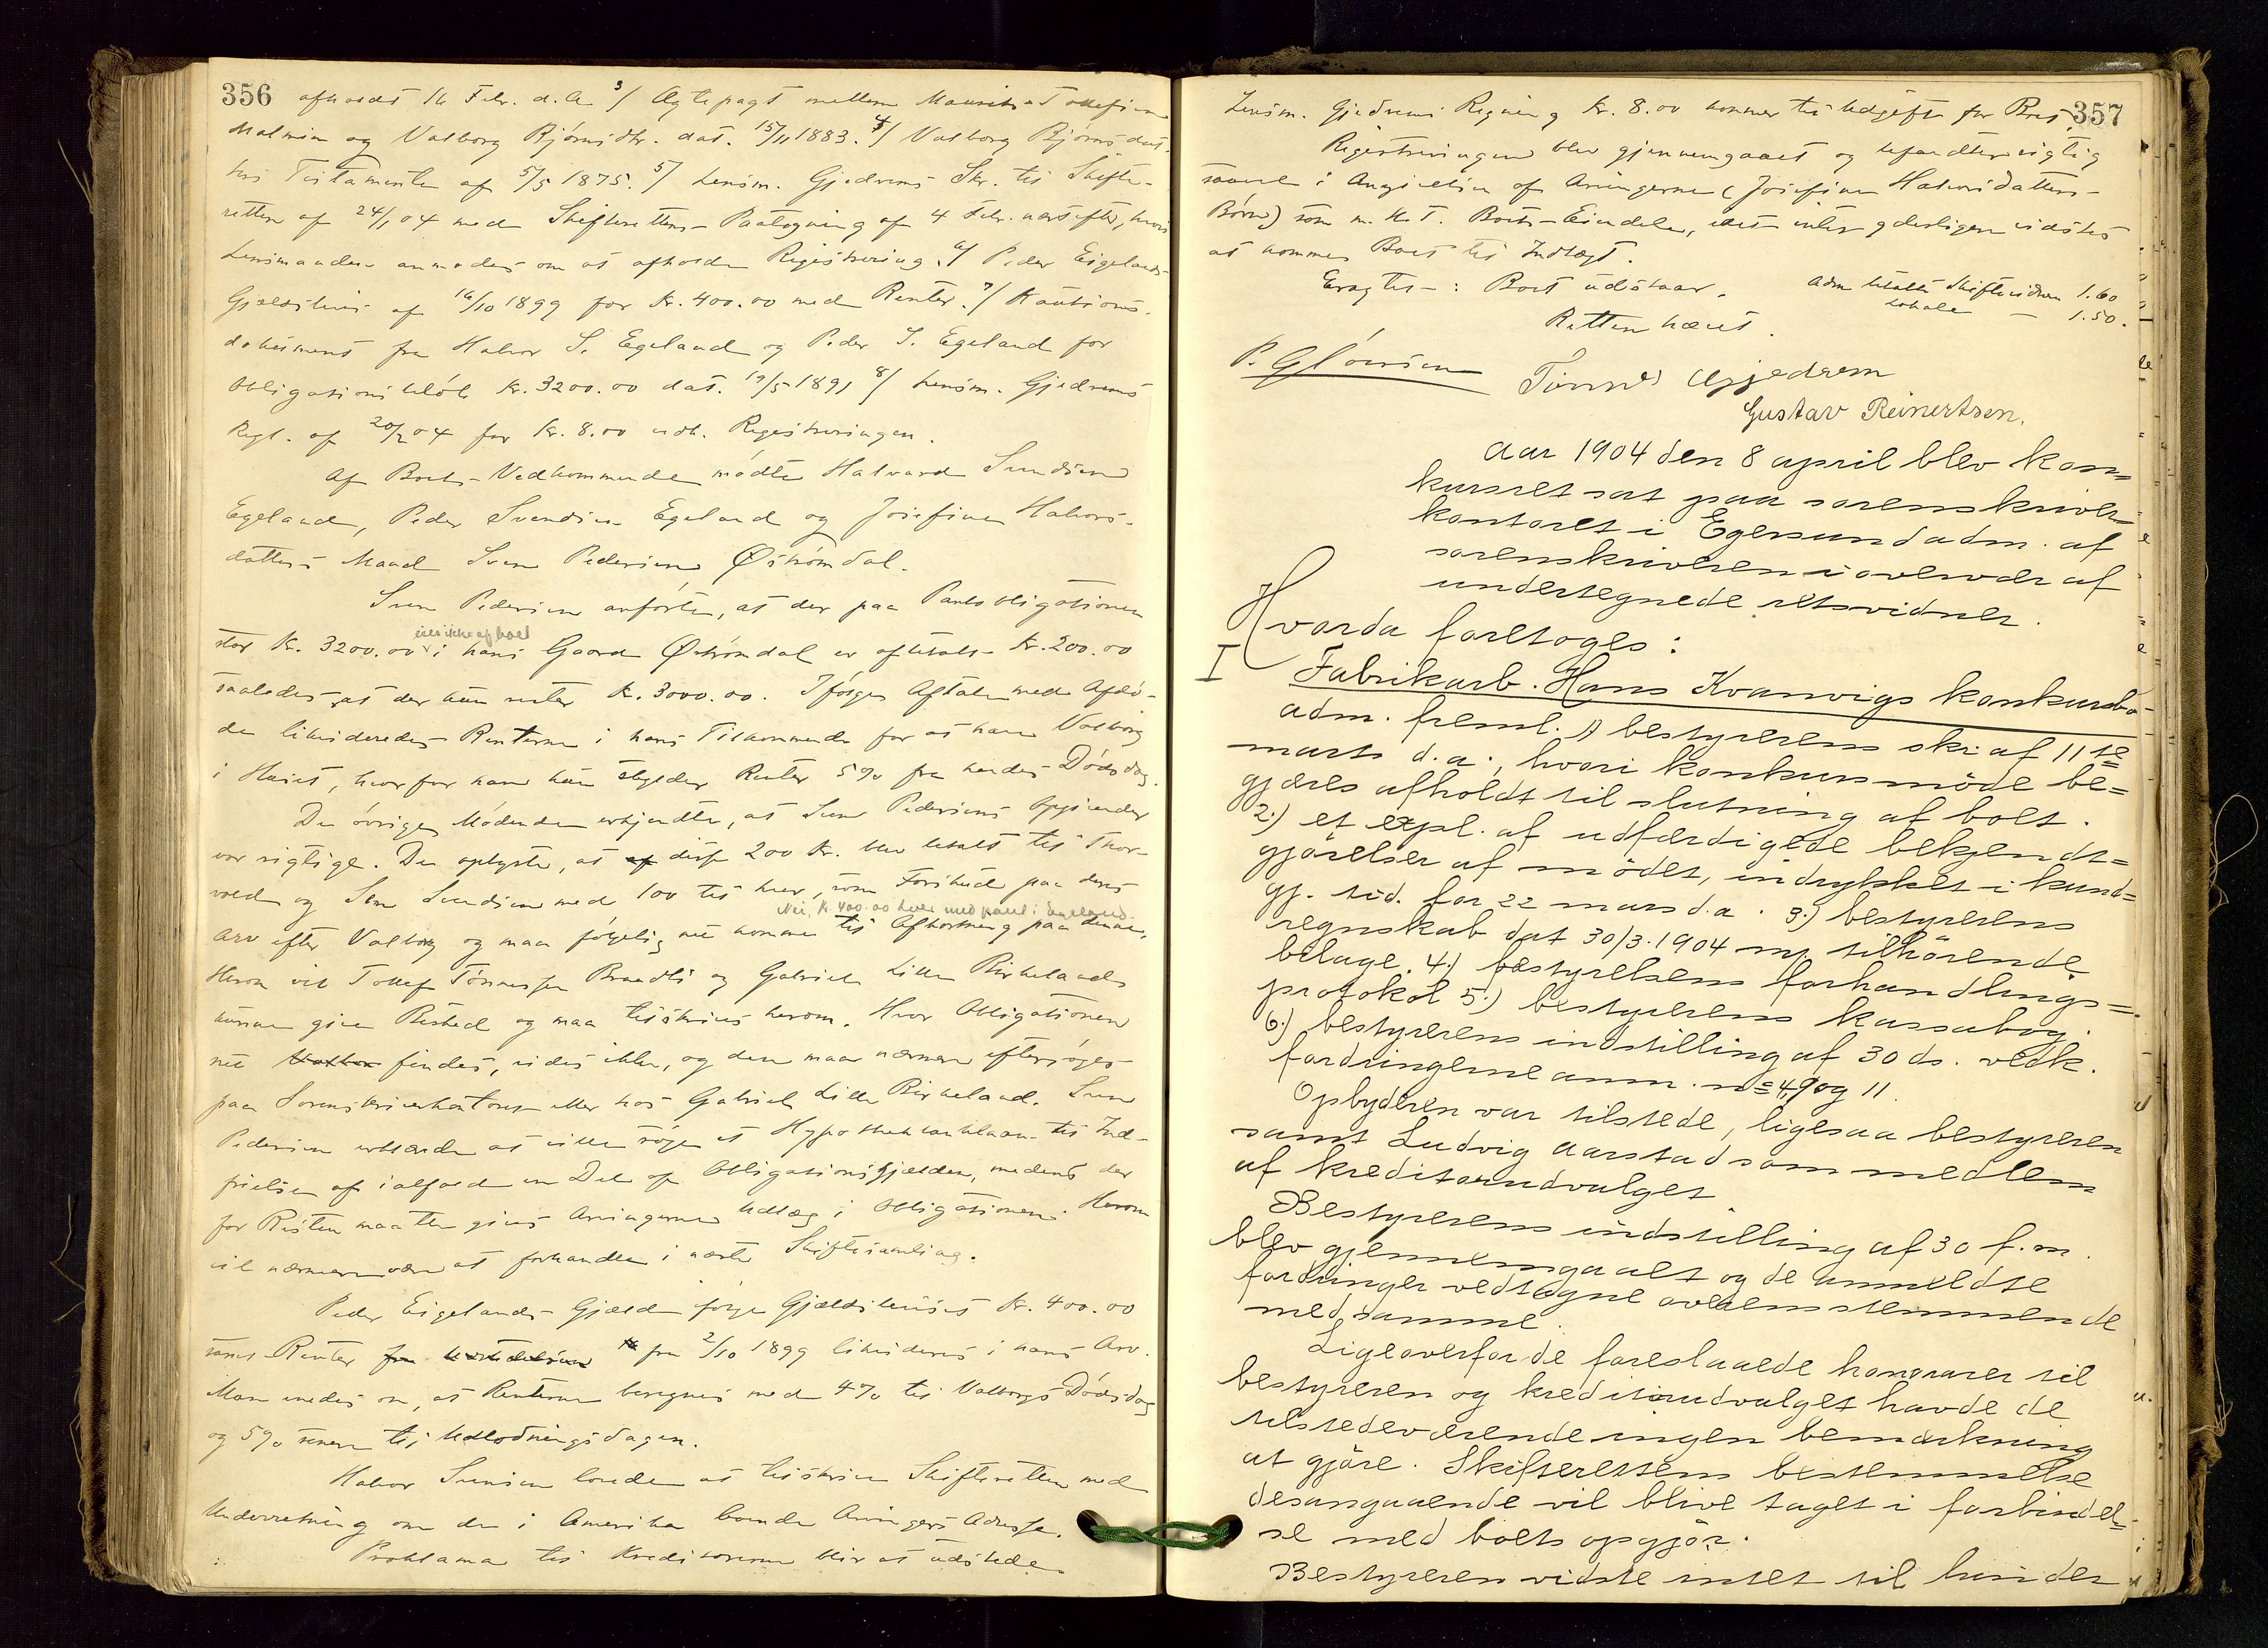 356
afholdt 16 Febr. d.A. 3/ Ægtepagt mellem Mauritz Tollefsen
Malmin og Valborg Bjørnsdtr. dat. 15/11 1883. 4/ Valborg Bjørnsdat-
ters Testamente af 5/5 1875. 5/ Lensm. Gjedrems Skr. til Skifte-
retten af 24/1 04 med Skifterettens Paategning af 4 Febr. næstefter, hvori
Lensmanden anmodes om at afholde Registrering. 6/ Peder Eigelands
Gjældsbevis af 16/10 1899 for Kr. 400.00 med Renter. 7/ Kautions-
dokument fra Halvor S. Egeland og Peder S. Egeland for
Obligationsbeløb Kr. 3200.00 dat. 19/5 1891 8/ Lensm. Gjedrems
Regn. af 20/2 04 for Kr. 8.00 vedk. Registreringen.
Af Boets Vedkommende mødte Halvard Svendsen
Egeland, Peder Svendsen Egeland og Josefine Halvors-
datters Mand Sven Pedersen Østrømdal.
Sven Pedersen anførte, at der paa Pantobligationen
eies ikke af boet
stor Kr. 3200.00 i hans Gaard Østrømdal er afbetalt Kr. 200.00
saaledes at der kun rester Kr. 3000.00. Ifølge Aftale med Afdø-
de likvideredes Renterne i hans Tilkommende for at have Valborg
i Huset, hvorfor han kun skylder Renter 5% fra hendes Dødsdag.
De øvrige Mødende erkjendte, at Sven Pedersens Opgivender
var rigtige. De oplyste, at af disse 200 Kr. blev betalt til Thor-
vald og Sven Svendsen med 100 til hver, som Forskud paa deres
Nei, Kr. 400.00 hver med pant i Egeland.
Arv efter Valborg og maa følgelig nu komme til Afkortning paa denne.
Herom vil Tollef Tønnessen Braadli og Gabriel Lille Birkeland
kunne give Besked og maa tilskrives herom. Hvor Obligationen
nu findes, vides ikke, og den maa nærmere eftersøges
paa Sorenskriverkontoret eller hos Gabriel Lille Birkeland. Sven
Pedersen erklærede at ville søge et Hypothekbanklaan til Ind-
frielse af ialfald en Del af Obligationsgjælden, medens der
for Resten maatte gives Arvingerne Udlæg i Obligationen. Herom
vil nærmere være at forhandle i næste Skiftesamling.
Peder Eigelands Gjæld ifølge Gjældsbeviset Kr. 400.00
samt Renter fra 2/10 1899 likvideres i hans Arv.
Man enedes om, at Renterne beregnes med 4% til Valborgs Dødsdag
og 5% senere til Udlodningsdagen.
Halvor Svensen lovede at tilskrive Skifteretten med
Underretning om de i Amerika boende Arvingers Adresse.
Proklama til Kreditorerne blir at udstede.
357
Lensm. Gjedrems Regning Kr. 8.00 kommer til Udgift for Boet.
Registreringen blev gjennemgaaet og befandtes rigtig
saavel i Angivelsen af Arvingerne (Josefine Halvorsdatters
Børn) som m. H. T. Boets Eiendele, idet intet yderligere vidstes
at komme Boet til Indtægt.
Eragtes: Boet udstaar.
Adm. betalte Skiftevidner 1.60
lokale — 1.50.
Retten hævet.
P. Glørsen
Tønnes Agjedrem
Gustav Reinertsen.
Aar 1904 den 8 april blev kon-
kursret sat paa sorenskriver-
kontoret i Egersund adm. af
sorenskriveren i overvær af
undertegnede retsvidner.
Hvorda foretoges:
I
Fabrikarb. Hans Kvanvigs konkursbo
adm. freml. 1) bestyrerens skr. af 11te
marts d.a., hvori konkursmöde be=
gjæres afholdt til slutning af boet.
2.) et expl. af udfærdigede bekjendt=
gjörelser af mödet, indrykket i kund=
gj. tid. for 22 mars d.a. 3.) bestyrerens
regnskab dat 30/3.1904 m/ tilhörende
bilage. 4.) bestyrelsens forhandlings=
protokol 5.) bestyrerens kassabog.
6.) bestyrerens indstilling af 30 ds. vedk.
fordringerne anm. no 4, 9 og 11.
Opbyderen var tilstede, ligesaa bestyreren
samt Ludvig Aarstad som medlem
af kreditorudvalget
Bestyrerens indstilling af 30 f.m.
blev gjennemgaaet og de anmeldte
fordringer vedtagne overensstemmende
med samme.
Ligeoverfor de foreslaaede honorarer til
bestyreren og kreditorudvalget havde de
tilstedeværende ingen bemærkning
at gjöre. Skifterettens bestemmelse
desangaaende vil blive taget i forbindel=
se med boets opgjör.
Bestyreren vidste intet til hinder